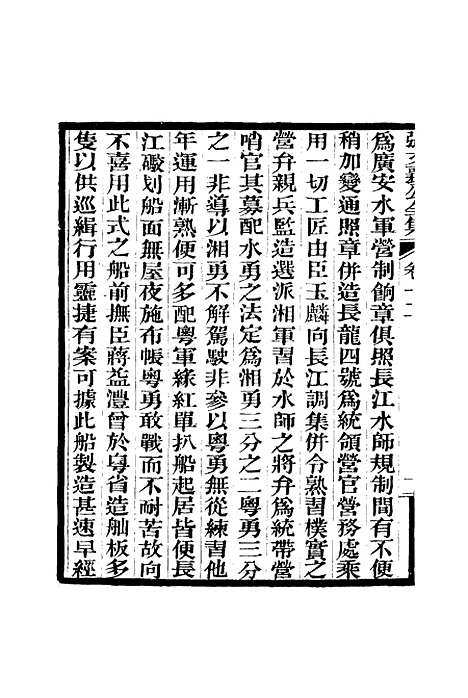 張文襄公全集 卷十二
爲廣安水軍營制餉章俱照長江水師規制間有不便
稍加變通照章併造長龍四號爲統領營官營務處乘
用一切工匠由臣玉麟向長江調集併令熟習樸實之
營弁親兵監造選派湘軍習於水師之將弁爲統帶營
哨官其募配水勇之法定爲湘勇三分之二粵勇三分
之一非導以湘勇不解駕駛非參以粵勇無從練習他
年運用漸熟便可多配粵軍緣紅單扒船起居皆便長
江礮划船面無屋夜施布帳粵勇敢戰而不耐苦故向
不喜用此式之船前撫臣蔣益澧曾於粵省造舢板多
隻以供巡緝行用靈捷有案可據此船製造甚速早經